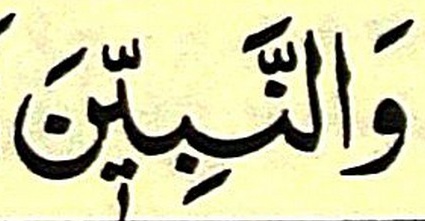 وَالنَّبِيِّنَ